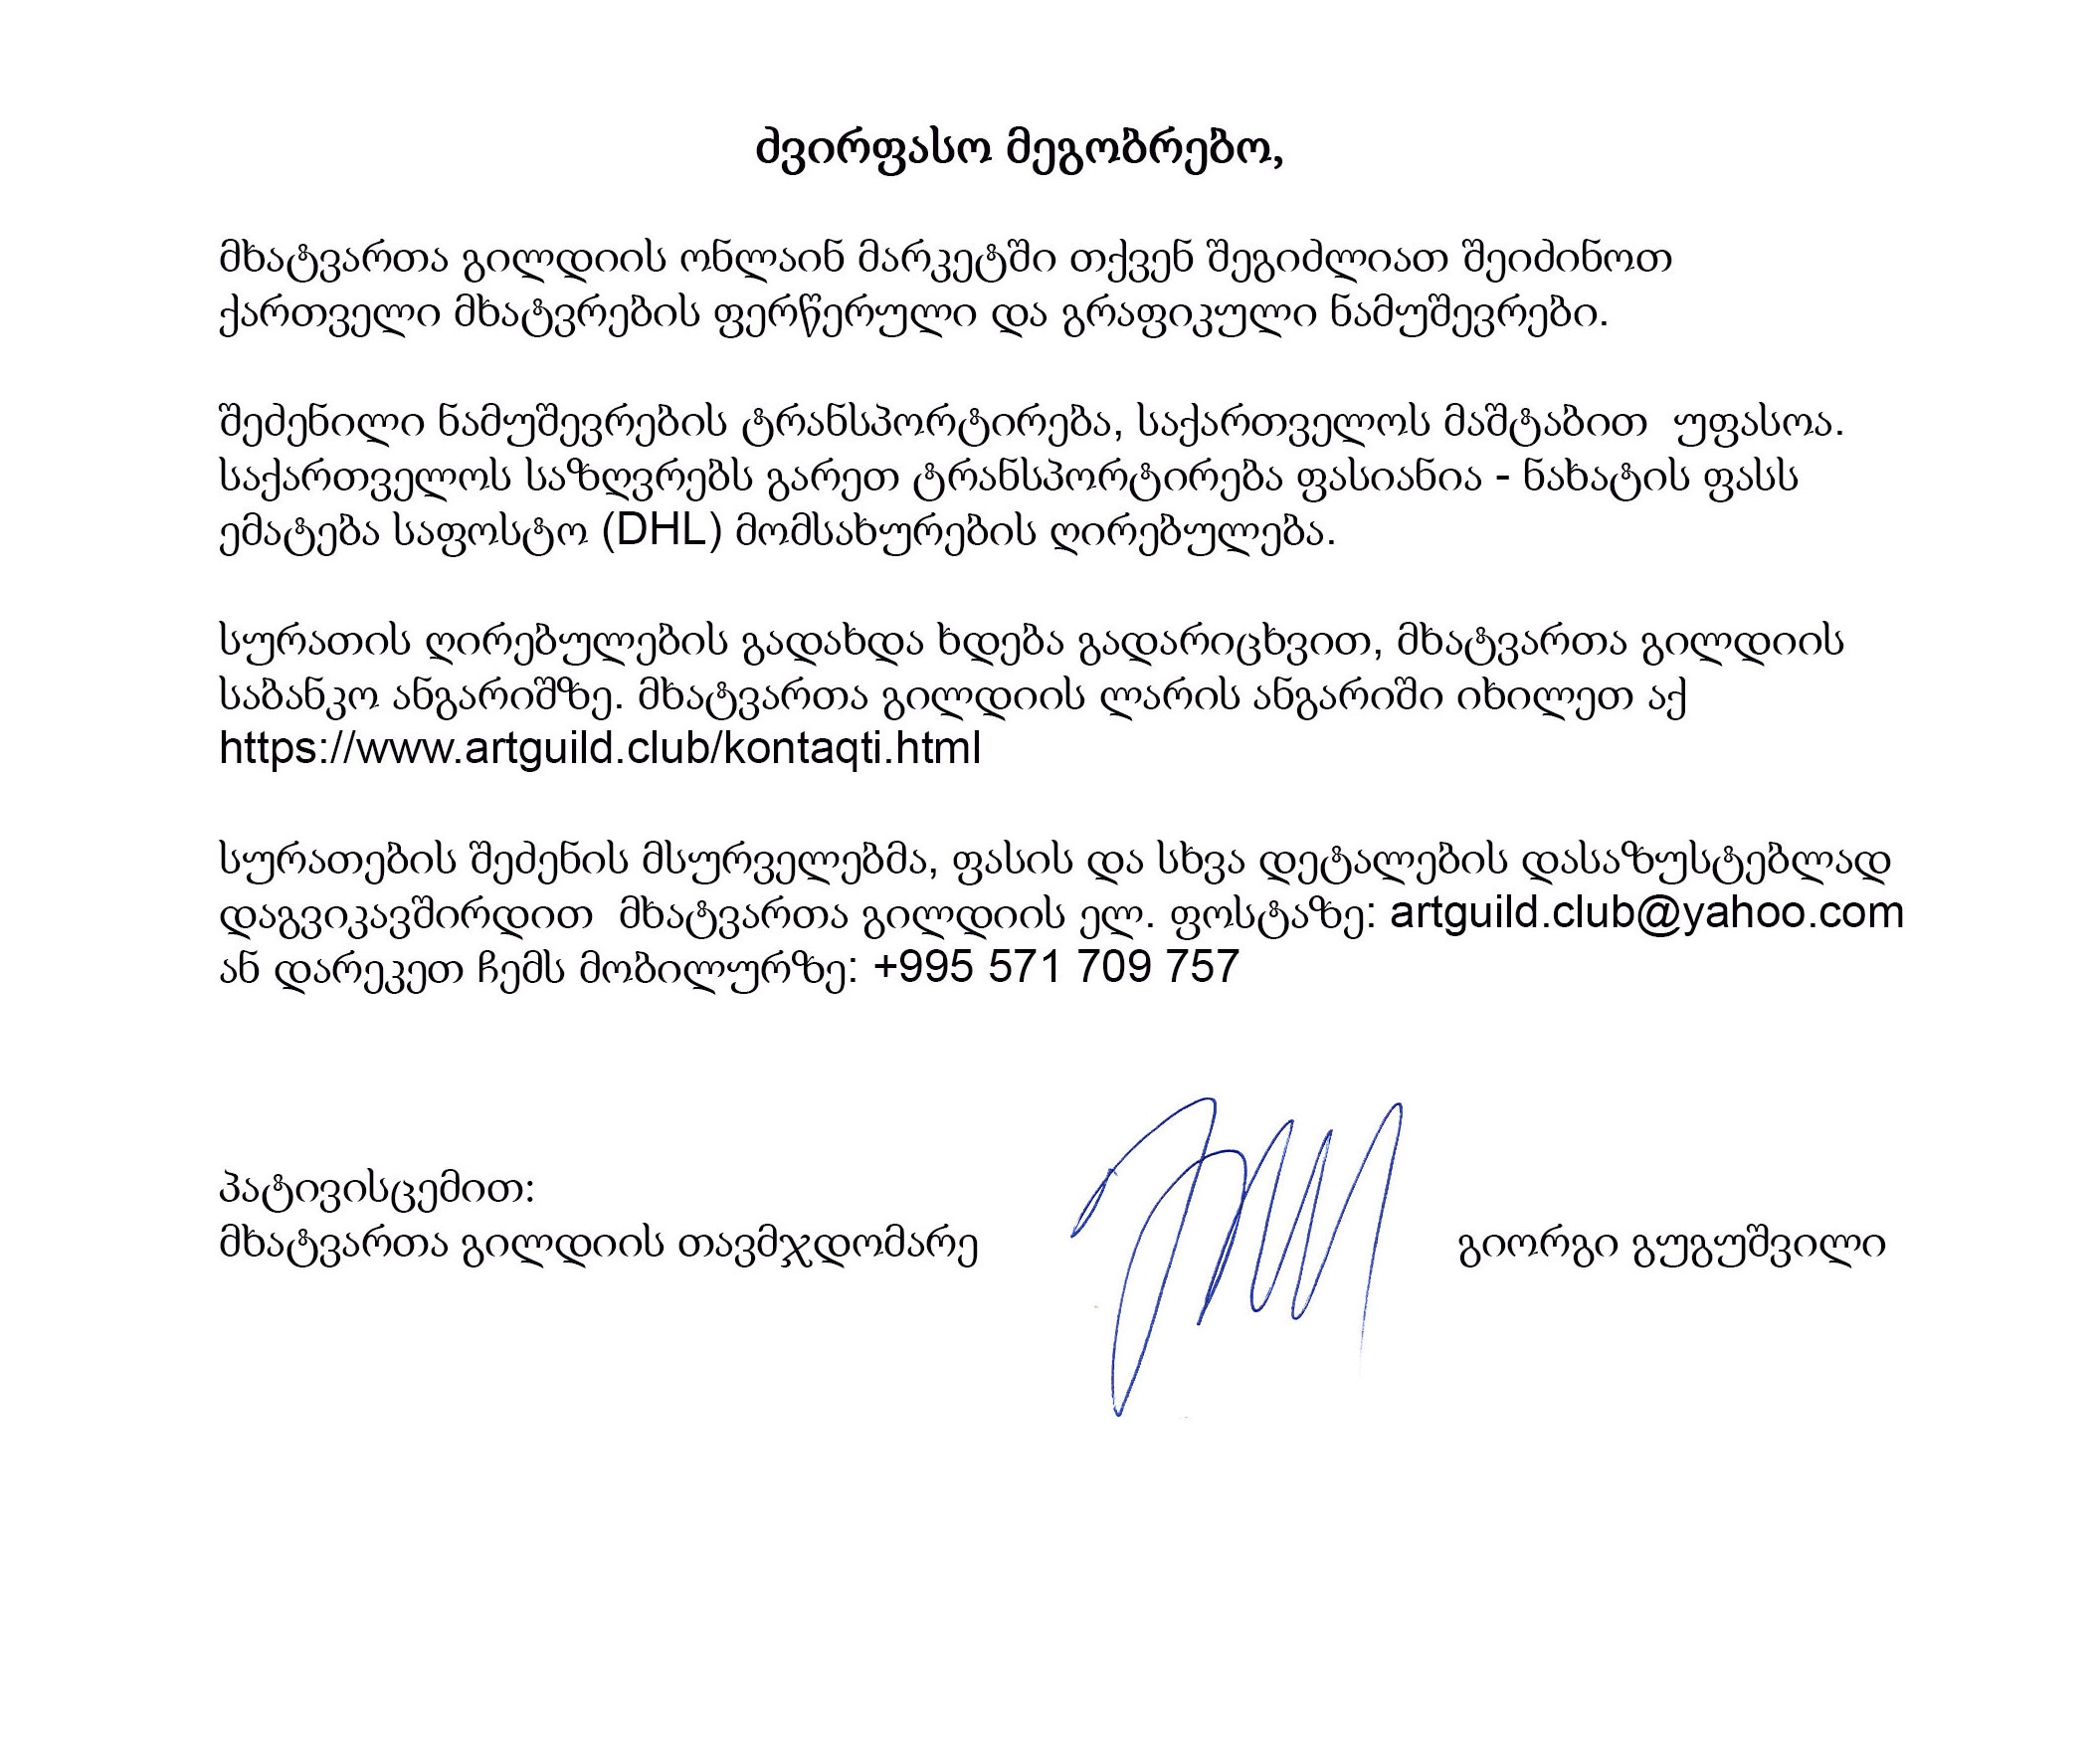 ძვირფასო მეგობრებო,
მხატვართა გილდიის ონლაინ მარკეტში თქვენ შეგიძლიათ შეიძინოთ
ქართველი მხატვრების ფერწერული და გრაფიკული ნამუშევრები.
შეძენილი ნამუშევრების ტრანსპორტირება, საქართველოს მაშტაბით უფასოა.
საქართველოს საზღვრებს გარეთ ტრანსპორტირება ფასიანია - ნახატის ფასს
ემატება საფოსტო (DHL) მომსახურების ღირებულება.
სურათის ღირებულების გადახდა ხდება გადარიცხვით, მხატვართა გილდიის
საბანკო ანგარიშზე. მხატვართა გილდიის ლარის ანგარიში იხილეთ აქ
https://www.artguild.club/kontaqti.html
სურათების შეძენის მსურველებმა, ფასის და სხვა დეტალების დასაზუსტებლად
დაგვიკავშირდით მხატვართა გილდიის ელ. ფოსტაზე: artguild.club@yahoo.com
ან დარეკეთ ჩემს მობილურზე: +995 571 709 757
პატივისცემით:
მხატვართა გილდიის თავმჯდომარე გიორგი გუგუშვილი